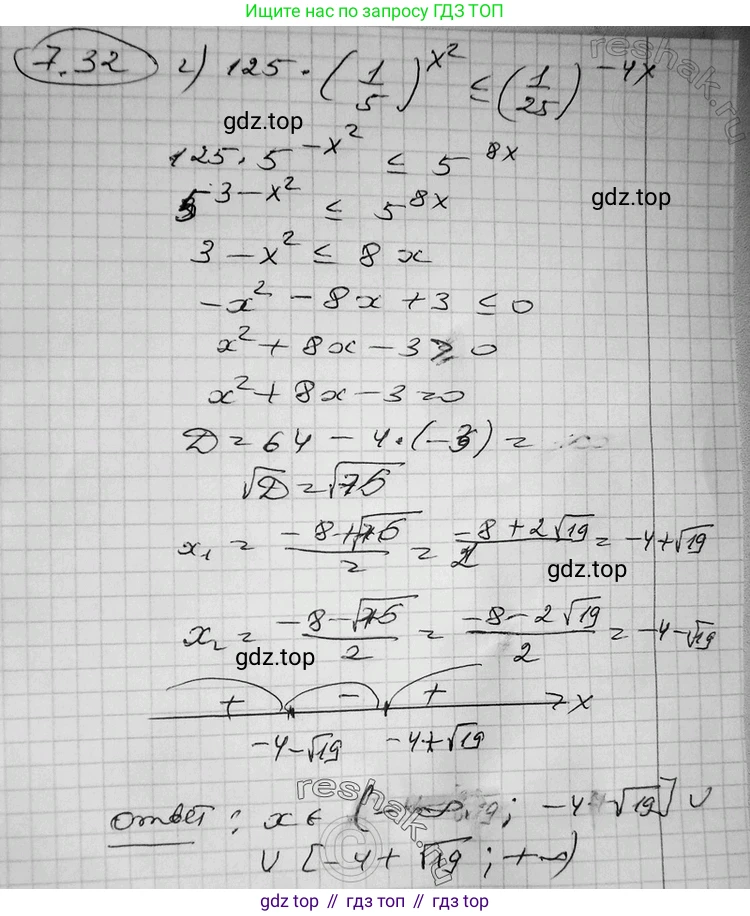 Ищите нас по запросу ГДЗ ТОП
7.32 г) 125 · (1/5)^x² ≤ (1/25)^-4x
reshak.ru
gdz.top
125 · 5^-x² ≤ 5^8x
gdz.top
5^3-x² ≤ 5^8x
3 - x² ≤ 8x
-x² - 8x + 3 ≤ 0
x² + 8x - 3 ≥ 0
x² + 8x - 3 = 0
D = 64 - 4 · (-3) =
√D = √76
x₁ = (-8+√76)/2 = (-8+2√19)/2 = -4+√19
gdz.top
x₂ = (-8-√76)/2 = (-8-2√19)/2 = -4-√19
gdz.top
+ - + x
-4-√19 -4+√19
reshak.ru
ответ: x ∈ (-∞; -4-√19] ∪
∪ [-4+√19; +∞)
gdz.top // gdz.top // gdz.top